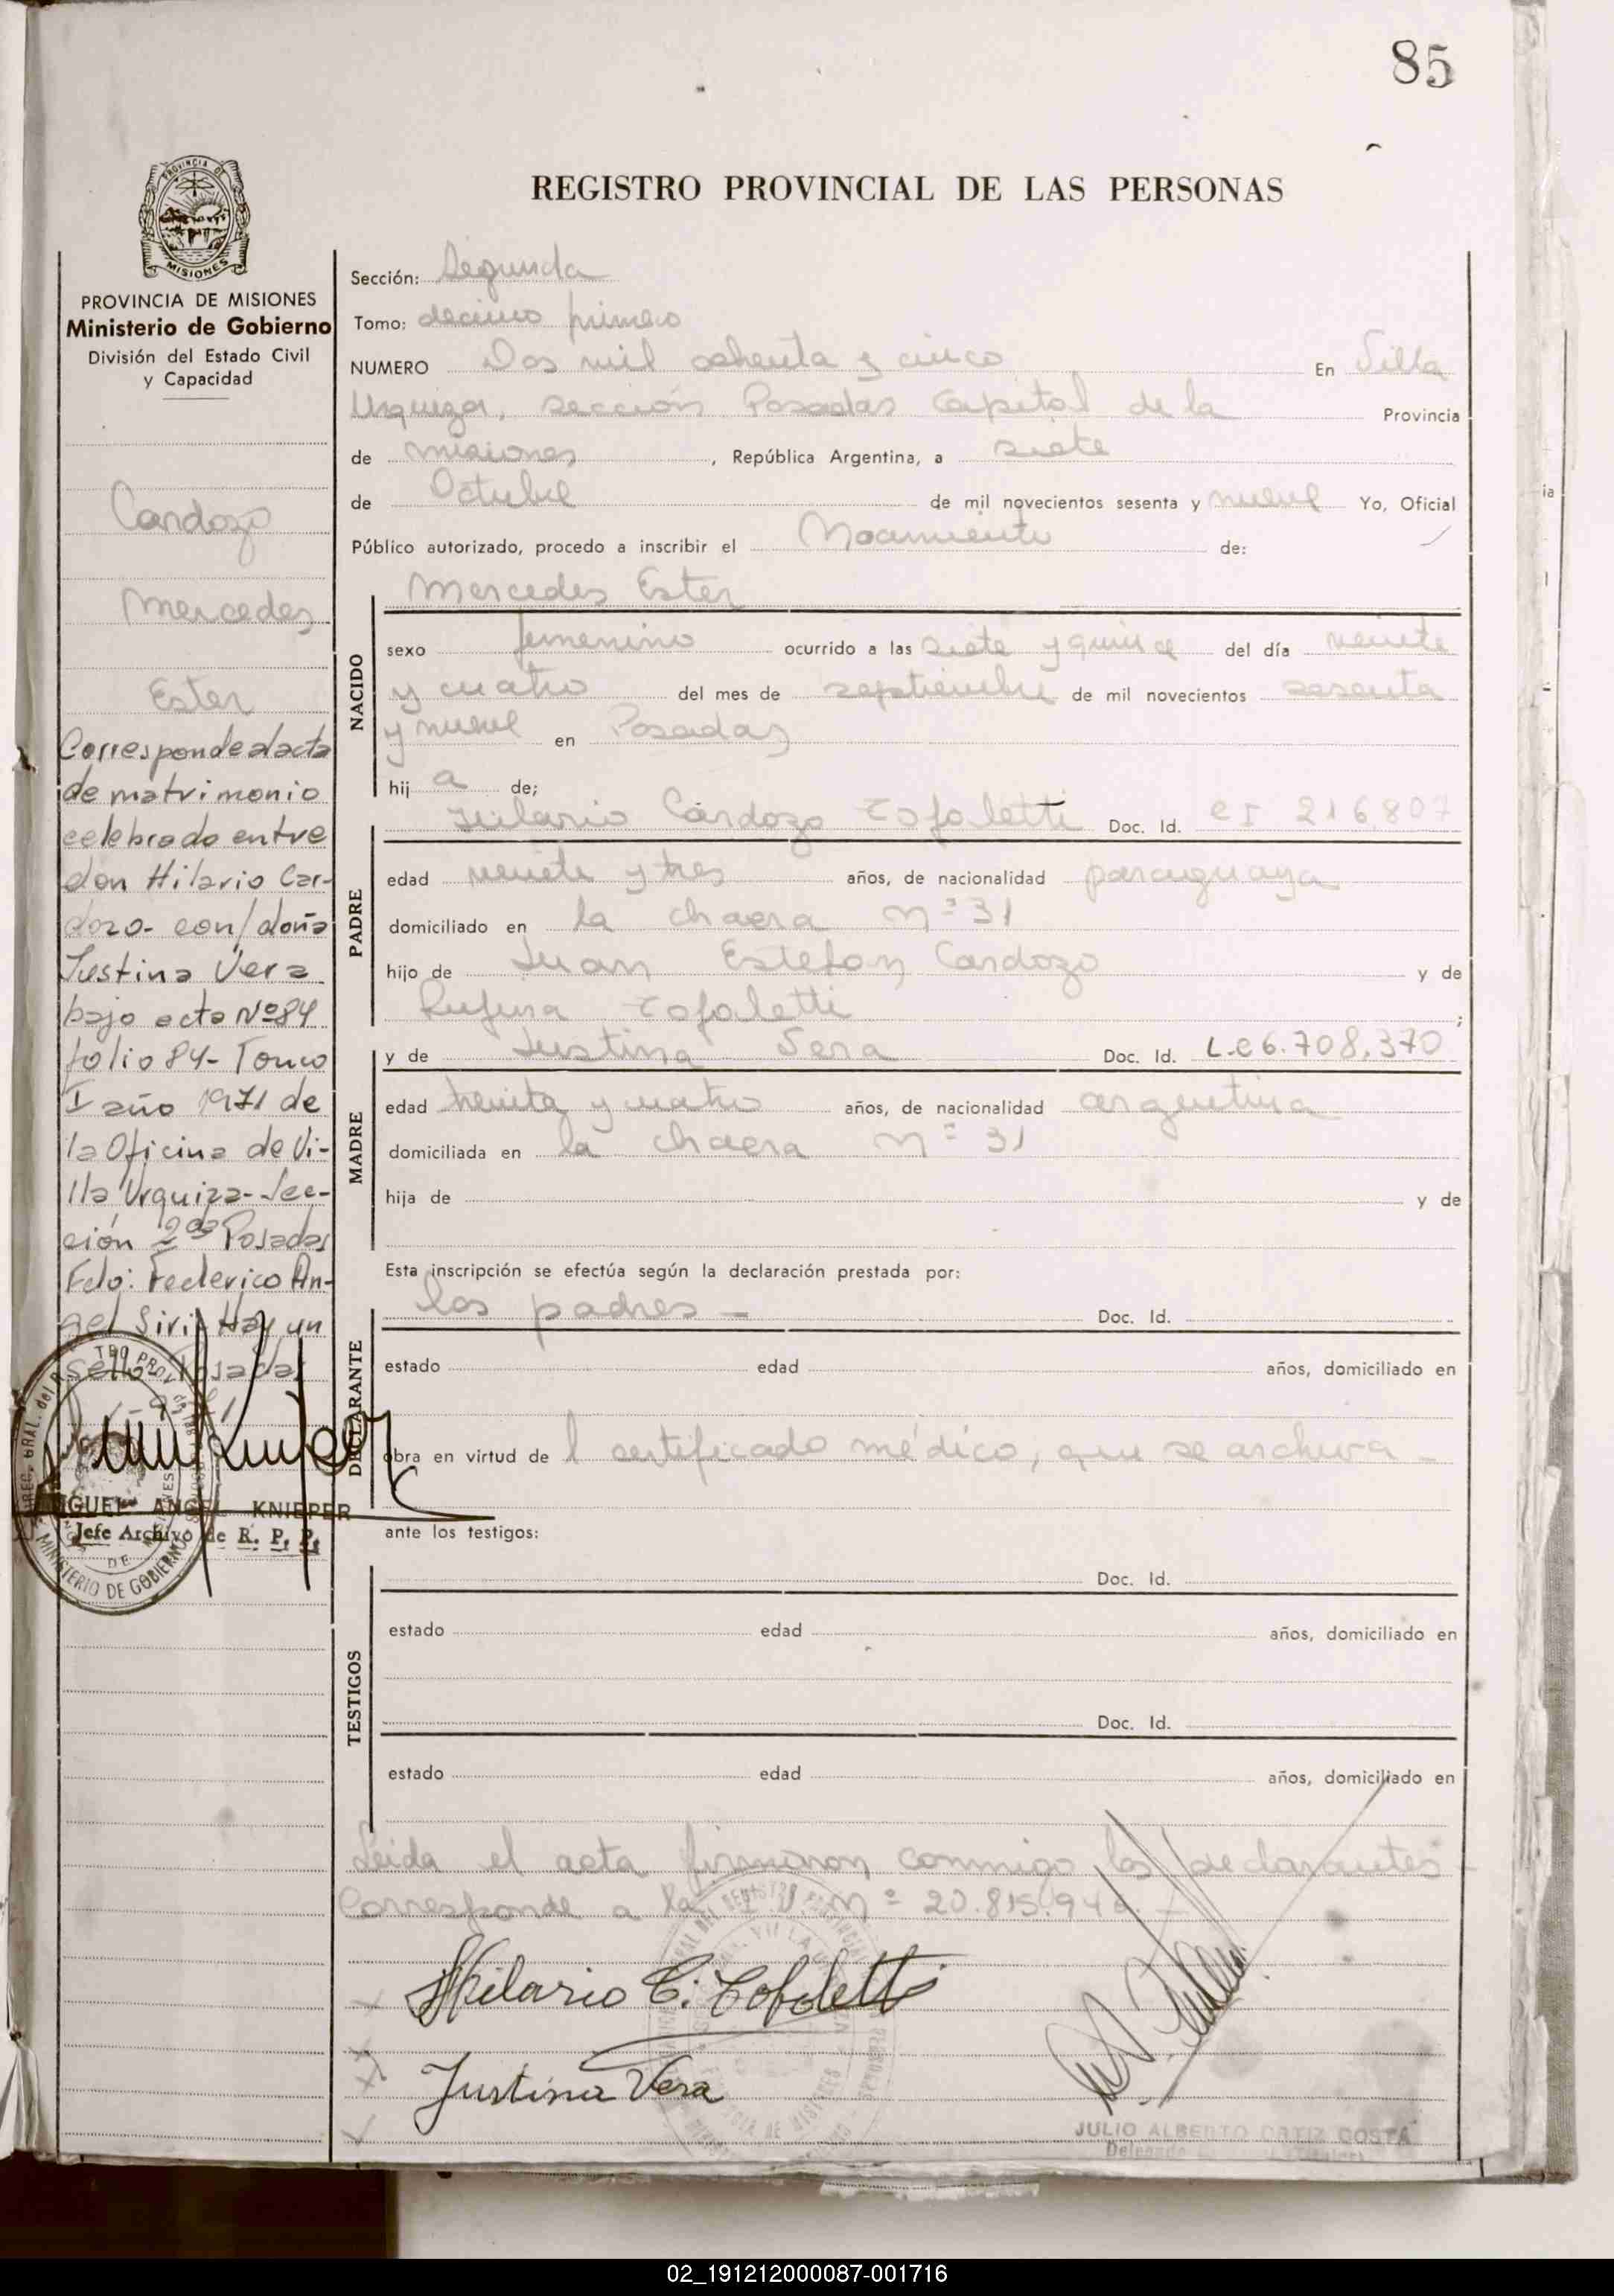 85
PROVINCIA DE
MISIONES
REGISTRO PROVINCIAL DE LAS PERSONAS
PROVINCIA DE MISIONES
Ministerio de Gobierno
División del Estado Civil
y Capacidad
Cardozo
Mercedes
Ester
Corresponde al acta
de matrimonio
celebrado entre
don Hilario Car-
dozo- con/doña
Justina Vera
bajo acta Nº84
folio 84- Tomo
I año 1971 de
la Oficina de Vi-
lla Urquiza- Sec-
ción 2da Posadas
Fdo: Federico An-
gel Siri- Hay un
sello Posadas
MIGUEL ANGEL KNIEPER
Jefe Archivo de R. P. P.
MINISTERIO DE GOBIERNO
Sección: Segunda
Tomo: decimo primero
NUMERO Dos mil ochenta y cinco En Villa
Urquiza, sección Posadas Capital de la Provincia
de misiones, República Argentina, a siete
de Octubre de mil novecientos sesenta y nueve Yo, Oficial
Público autorizado, procedo a inscribir el Nacimiento de:
Mercedes Ester
NACIDO
sexo femenino ocurrido a las siete y quince del día veinte
y cuatro del mes de septiembre de mil novecientos sesenta
y nueve en Posadas
hij a de;
Hilario Cardozo Tofaletti Doc. Id. CI 216.807
PADRE
edad veinte y tres años, de nacionalidad paraguaya
domiciliado en la chacra nº 31
hijo de Juan Estefan Cardozo y de
Rufina Tofaletti ;
y de Justina Vera Doc. Id. L.C 6.708.370
MADRE
edad treinta y cuatro años, de nacionalidad argentina
domiciliada en la chacra nº 31
hija de y de
Esta inscripción se efectúa según la declaración prestada por:
los padres - Doc. Id.
DECLARANTE
estado edad años, domiciliado en
obra en virtud de l certificado médico, que se archiva -
ante los testigos:
Doc. Id.
TESTIGOS
estado edad años, domiciliado en
Doc. Id.
estado edad años, domiciliado en
Leida el acta firmaron conmigo los declarantes -
Corresponde a la nº 20.815.946. -
Hilario C. Tofoletti
Justina Vera
JULIO ALBERTO ORTIZ COSTA
02_191212000087-001716